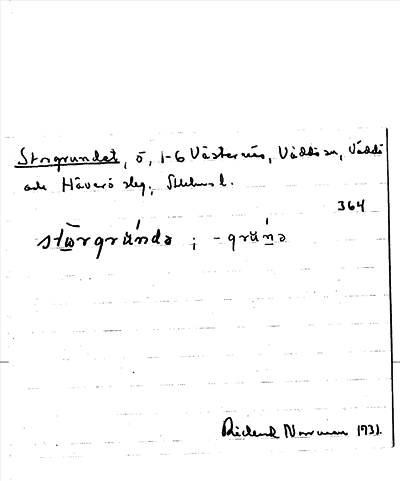 Storgrundet, ö, 1-6 Västernäs, Väddö sn, Väddö
och Häverö slg, Sthlms l.
364
stōrgrúndə ; -grúnə
Rickard Norrman 1931.